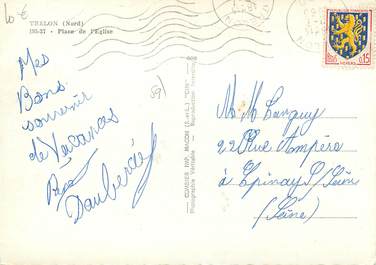 10 €
TRELON (Nord)
195-27 - Place de l'Eglise
Mes
Bons
souvenir
de Vacances
Daubercies
59)
COMBIER IMP. MACON (S.-et-L.) "CIM"
Photographie Véritable
Reproduction Interdite
NEVERS
0,15
M M Tanguy
22 Rue Ampère
à Epinay S/Seine
(Seine)